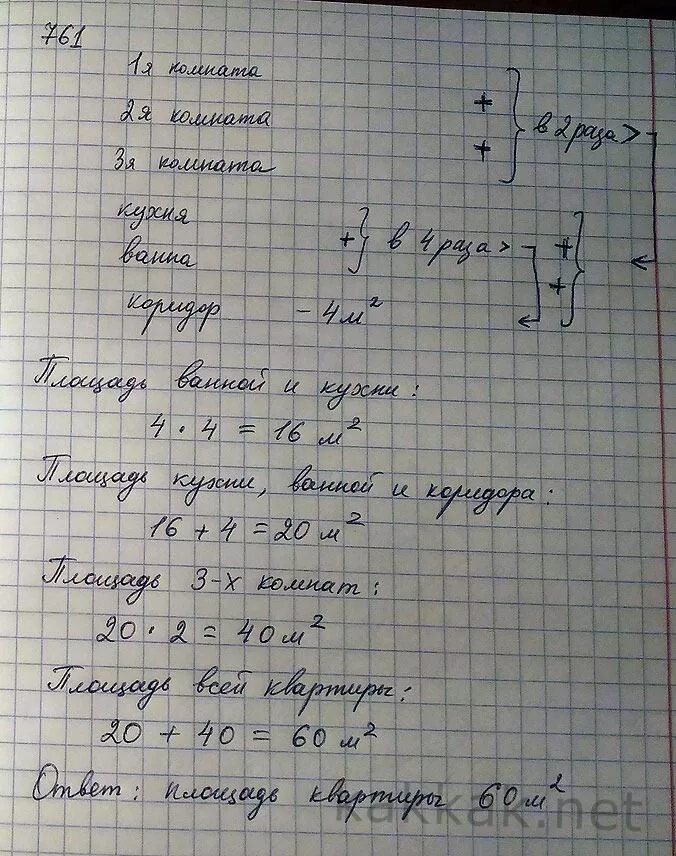 761
1я комната
2я комната +
3я комната + } в 2 раза >
кухня
ванна + } в 4 раза > + + }
коридор - 4 м²
Площадь ванной и кухни:
4 · 4 = 16 м²
Площадь кухни, ванной и коридора:
16 + 4 = 20 м²
Площадь 3-х комнат:
20 · 2 = 40 м²
Площадь всей квартиры:
20 + 40 = 60 м²
Ответ: площадь квартиры 60 м²
kakkak.net